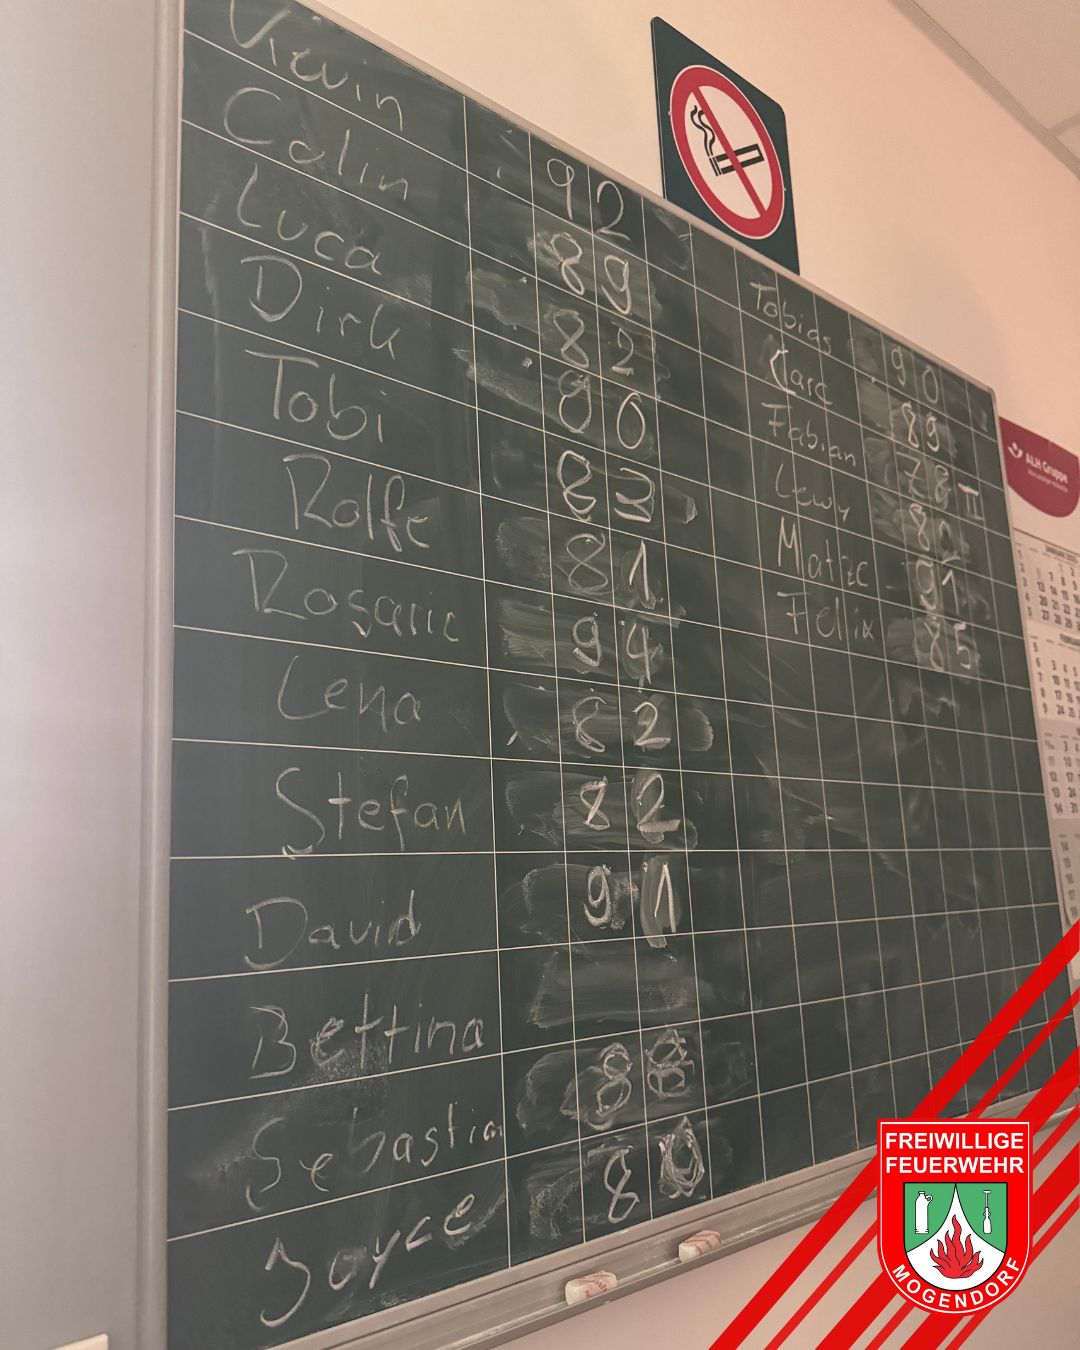 92
Calin 89
Luca 82
Dirk 90
Tobi 83
Rolfe 81
Rosarie 94
Lena 82
Stefan 82
David 91
Bettina
Sebastian 88
Joyce 80
Tobias 90
89
Fabian 78 II
Lewy 82
Matze 91
Fellix 85
ALH Gruppe
FREIWILLIGE
FEUERWEHR
MOGENDORF